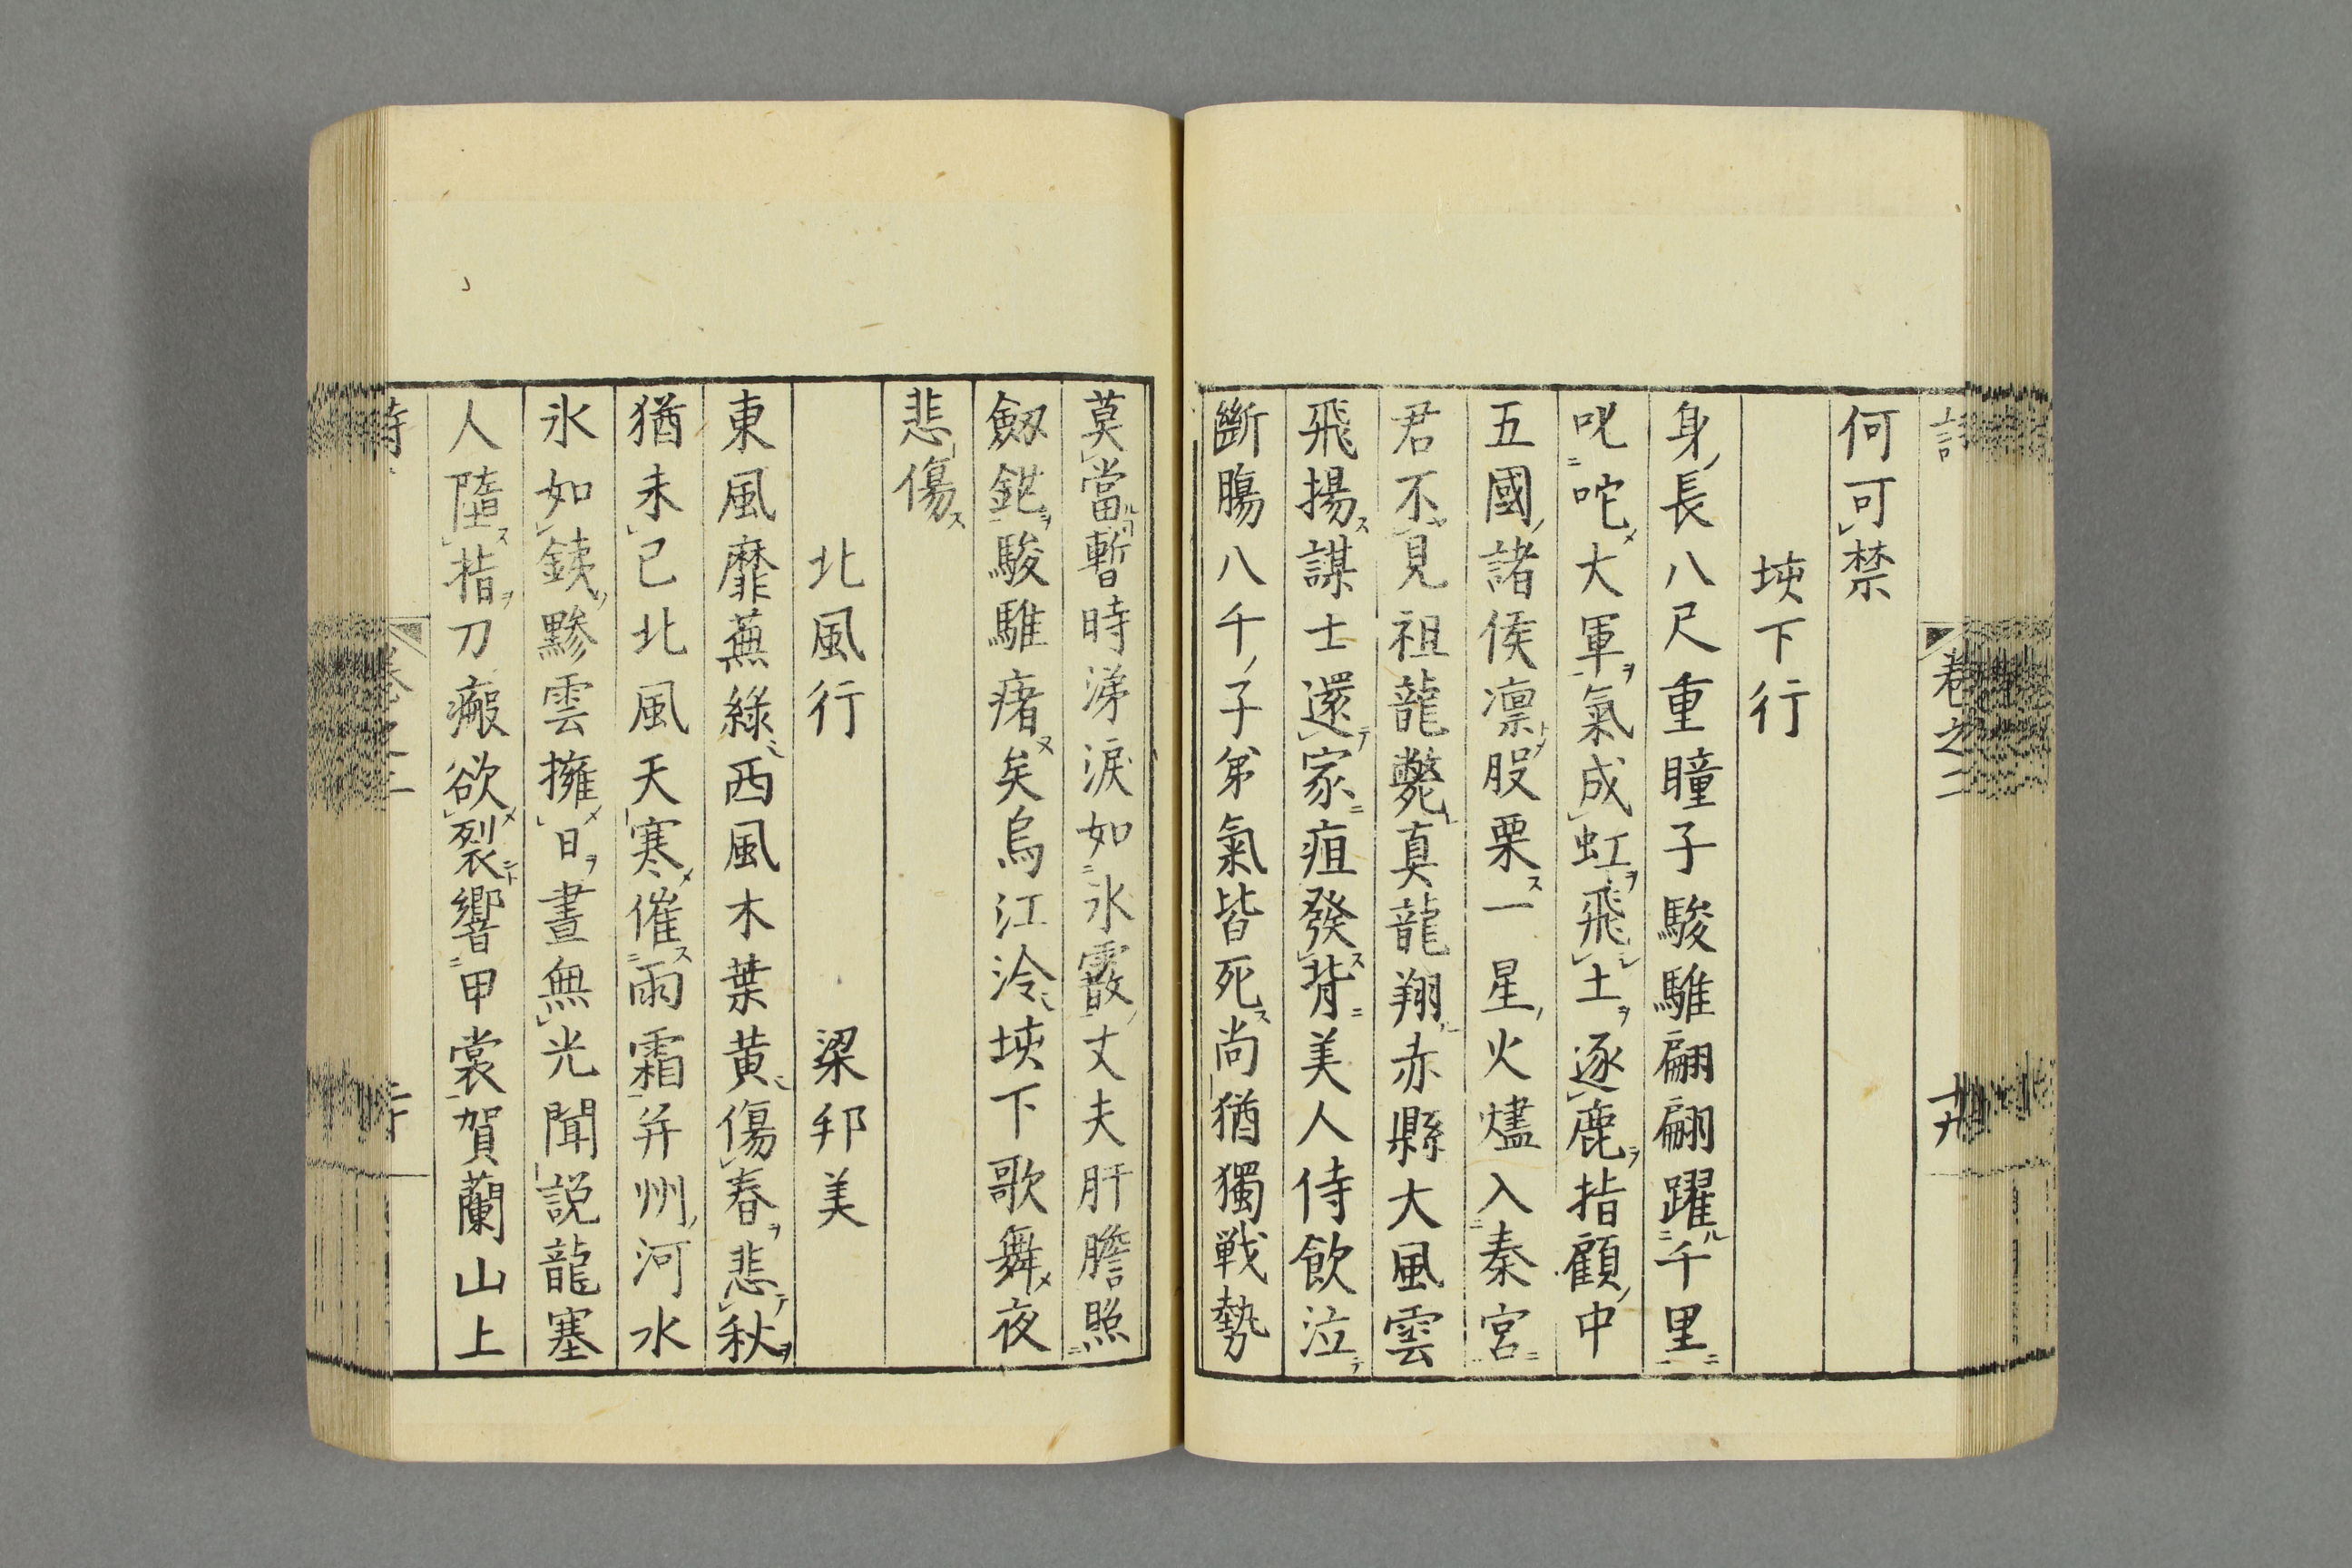 何可禁
垓下行
身長八尺重瞳子駿騅翩翩躍千里
叱咤大軍氣成虹飛土逐鹿指顧中
五國諸侯凛股栗一星火燼入秦宮
君不見祖龍斃真龍翔赤縣大風雲
飛揚謀士還家疽發背美人侍飲泣
斷腸八千子弟氣皆死尚猶獨戦勢
莫當暫時涕淚如氷霰丈夫肝膽照
劔鋩駿騅瘏矣烏江冷垓下歌舞夜
悲傷
北風行 梁邦美
東風靡蕪綠西風木葉黄傷春悲秋
猶未已北風天寒催雨霜并州河水
氷如銕黲雲擁日晝無光聞説龍塞
人墮指刀瘢欲裂響甲裳賀蘭山上
卷之二